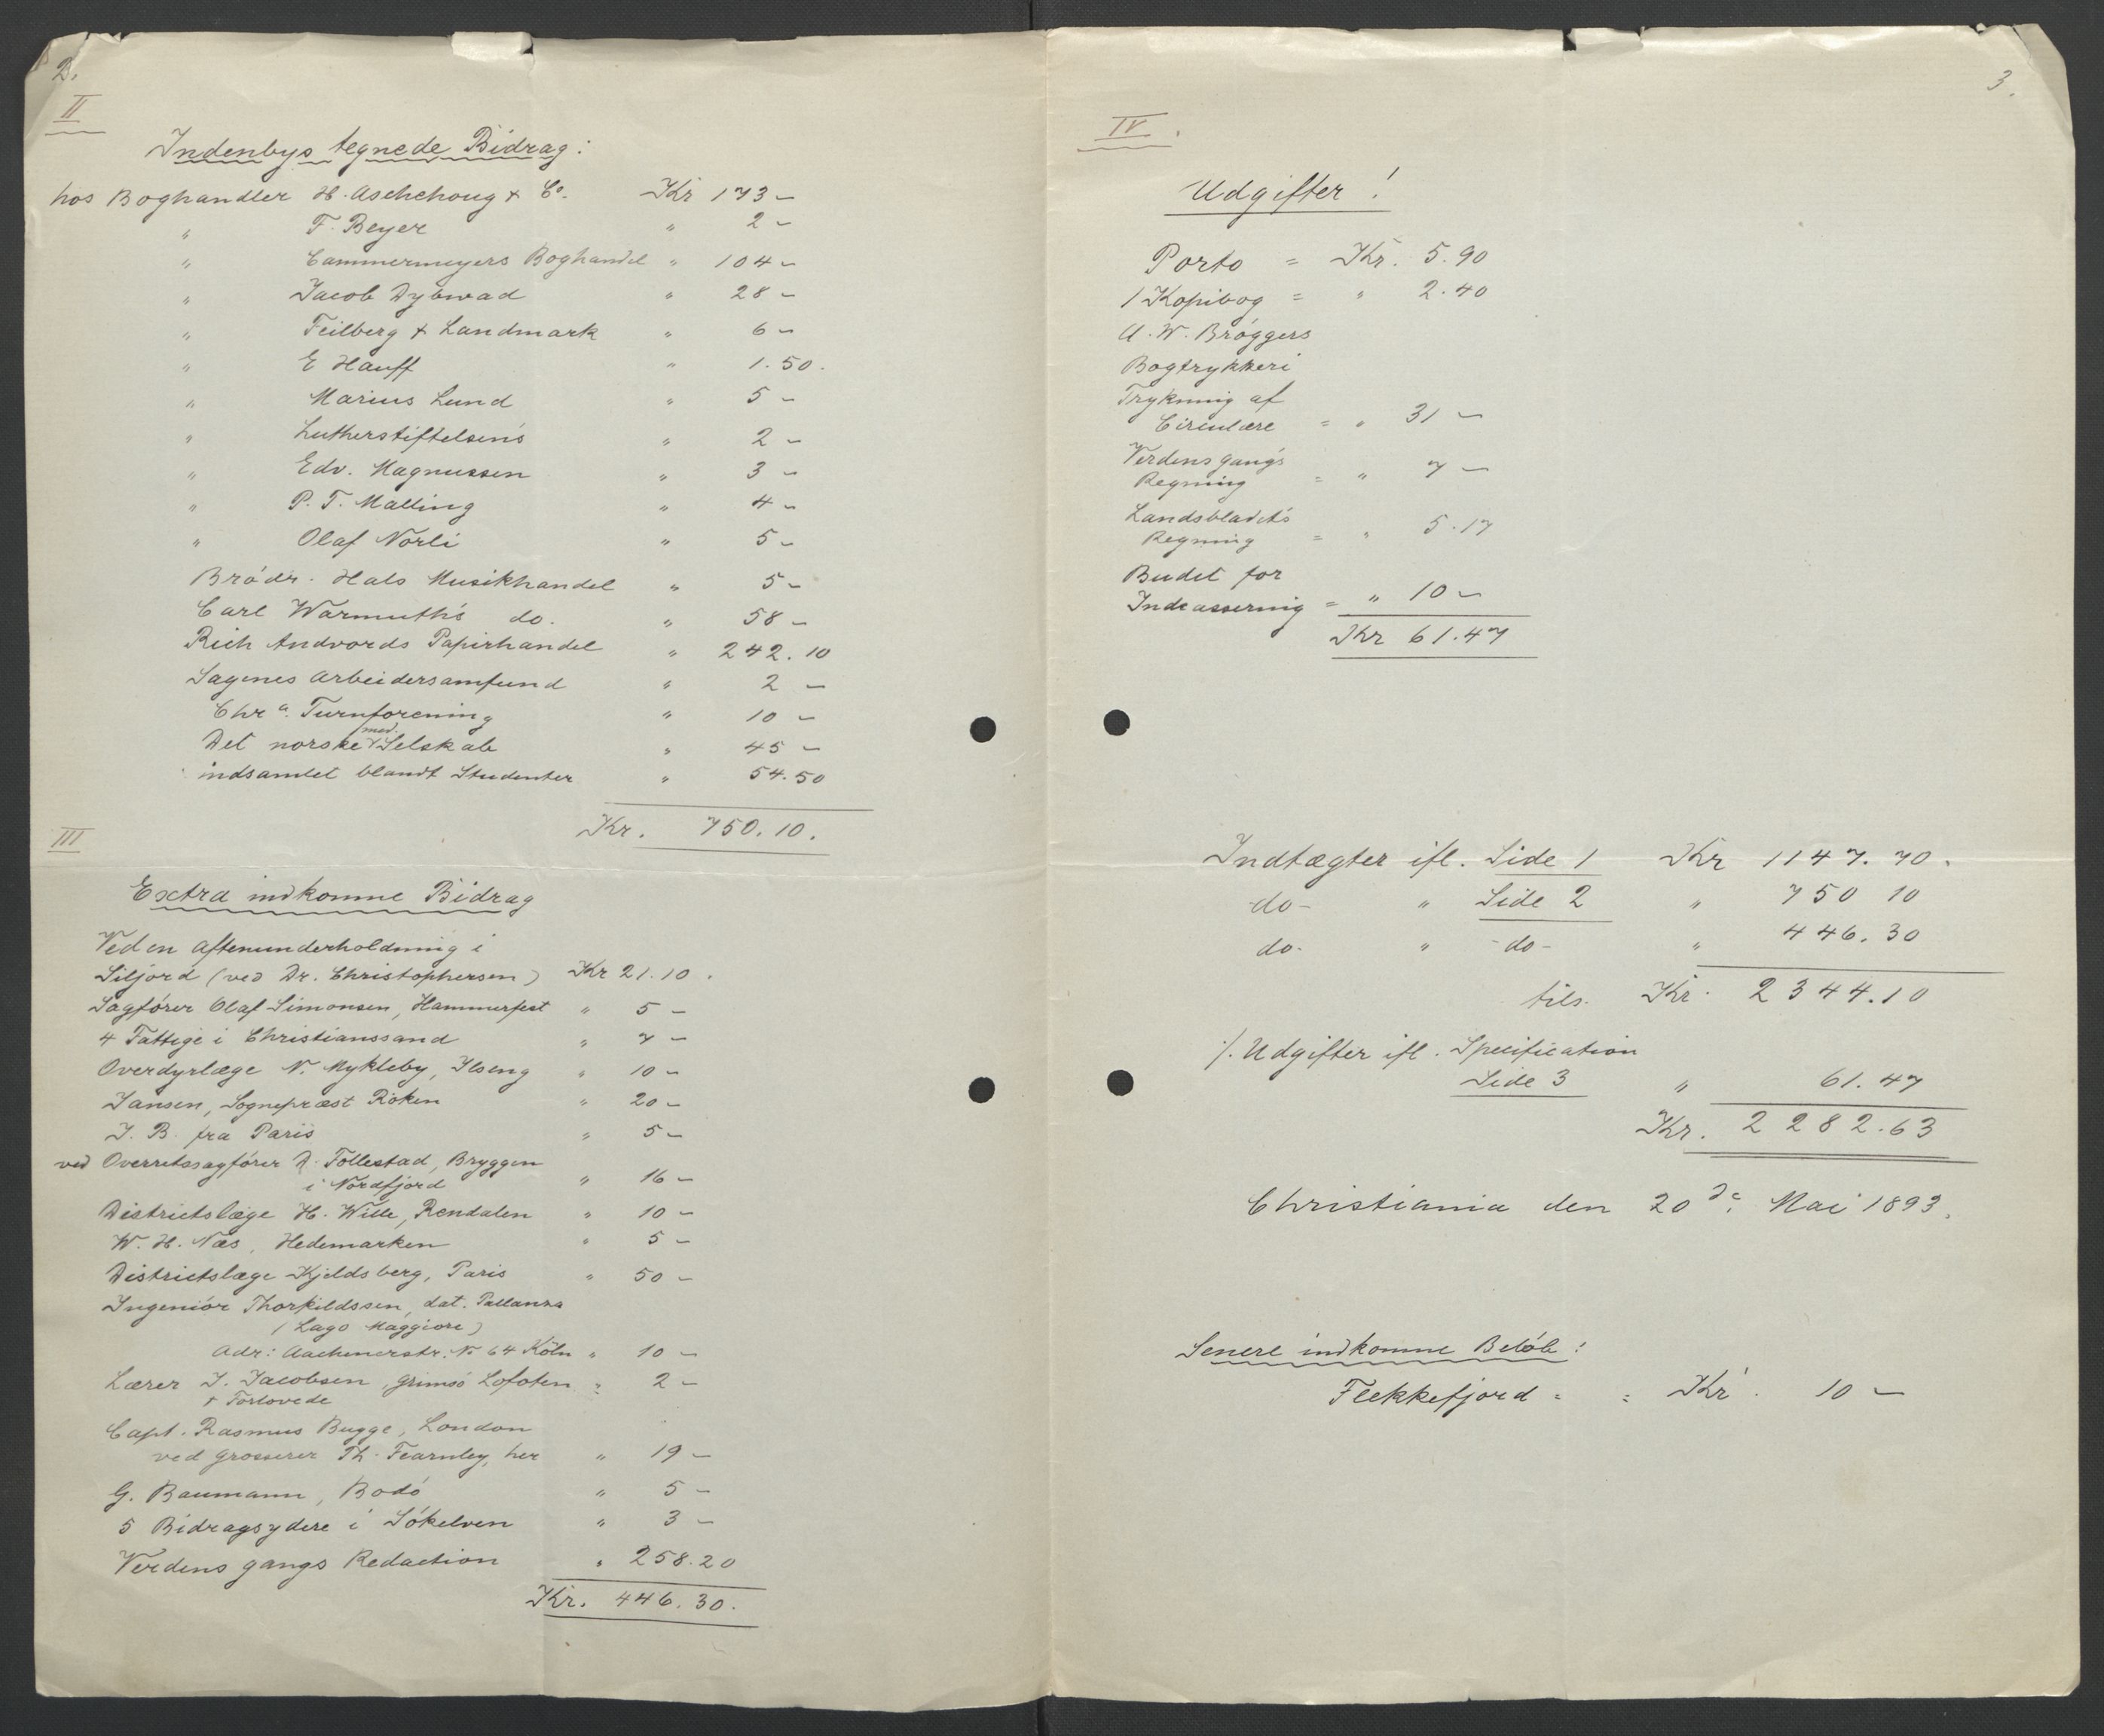 2.
II
Indenbys tegnede Bidrag:
hos Boghandler H. Aschehoug & Co. Kr 173 –
" F. Beyer " 2 –
" Cammermeyers Boghandel " 104 –
" Jacob Dybwad " 28 –
" Feilberg & Landmark " 6 –
" E Hauff " 1.50.
" Marius Lund " 5 –
" Lutherstiftelsen's " 2 –
" Edv. Magnussen " 3 –
" P. T. Malling " 4 –
" Olaf Norli " 5 –
Brødr. Hals Musikhandel " 5 –
Carl Warmuth's do. " 58 –
Rich Andvords Papirhandel " 242.10
Sagenes Arbeidersamfund " 2 –
Chra. Turnforening " 10 –
Det norske med. Selskab " 45 –
indsamlet blandt Studenter " 54.50
Kr. 750.10.
III
Extra indkomne Bidrag
Ved en Aftenunderholdning i
Siljord (ved Dr. Christophersen) Kr 21.10.
Sagfører Olaf Simonsen, Hammerfest " 5 –
4 Fattige i Christianssand " 7 –
Overdyrlæge N. Mykleby, Ilseng " 10 –
Jansen, Sognepræst Röken " 20 –
J. B. fra Paris " 5 –
ved Overretssagfører D. Tollestad, Bryggen
i Nordfjord " 16 –
Districtslæge H. Wille, Rendalen " 10 –
W. H. Næs, Hedemarken " 5 –
Districtslæge Kjeldsberg, Paris " 50 –
Ingeniör Thorkildssen, dat. Pallanza
(Lago Maggiore)
Adr: Aachenerstr. No 64 Köln " 10 –
Lærer J. Jacobsen, Grimsö Lofoten " 2 –
& Forlovede
Capt. Rasmus Bugge, London
ved Grosserer Th. Fearnley, her " 19 –
G. Baumann, Bodó " 5 –
5 Bidragsydere i Sökelven " 3 –
Verdens gangs Redaction " 258.20
Kr. 446.30.
3.
IV.
Udgifter!
Porto = Kr. 5.90
1 Kopibog = " 2.40
A. W. Bróggers
Bogtrykkeri
Trykning af
Circulære = " 31 –
Verdens gang's
Regning = " 7 –
Landsbladet's
Regning = " 5.17
Budet for
Indcassering = " 10 –
Kr 61.47
Indtægter ifl. Side 1 Kr 1147.70.
do – " Side 2 " 750 10
do. " – do – " 446.30
tils. Kr. 2344.10
./. Udgifter ifl. Specification
Side 3 " 61.47
Kr. 2282.63
Christiania den 20de. Mai 1893.
Senere indkomne Beløb:
Flekkefjord = = Kr. 10 –